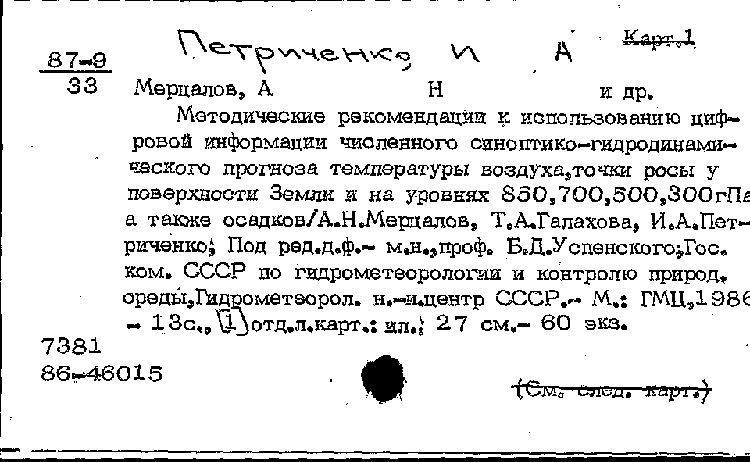 Петриченко, И А
Карт.1
87-9
33
Мерцалов, А Н и др.
Методические рекомендации к использованию циф-
ровой информации численного синоптико-гидродинами-
ческого прогноза температуры воздуха,точки росы у
поверхности Земли и на уровнях 850,700,500,300гПа
а также осадков/А.Н.Мерцалов, Т.А.Галахова, И.А.Пет-
риченко; Под ред.д.ф.- м.н.,проф. Б.Д.Успенского;Гос.
ком. СССР по гидрометеорологии и контролю природ.
среды,Гидрометеорол. н.-и.центр СССР.- М.: ГМЦ,1986
- 13с.,[1]отд.л.карт.: ил.; 27 см.- 60 экз.
7381
86-46015
(См. след. карт.)